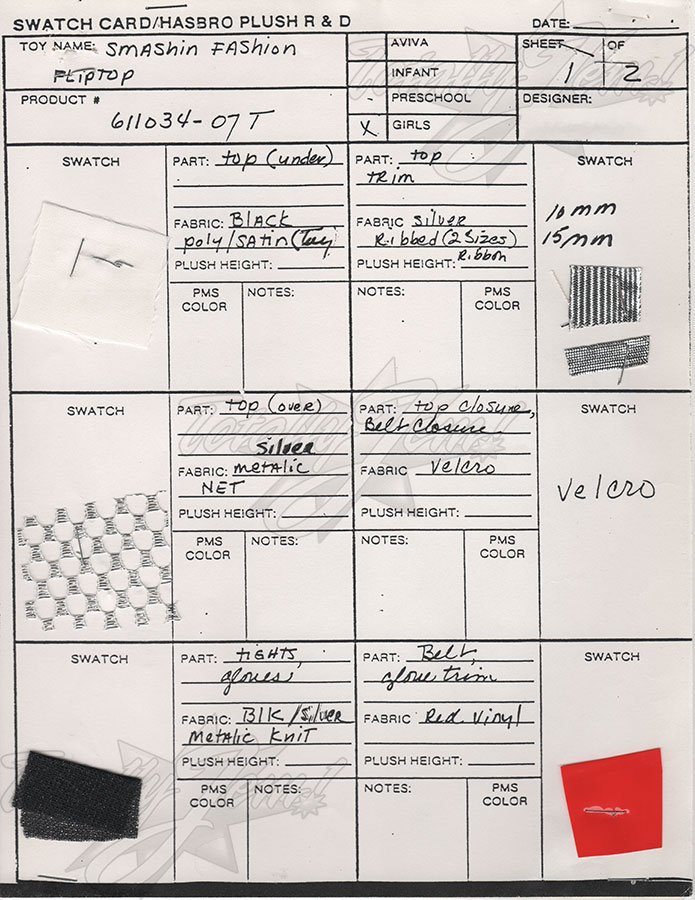 SWATCH CARD/HASBRO PLUSH R & D
DATE:
TOY NAME: SMASHIN FASHION
FLIPTOP
AVIVA
INFANT
PRESCHOOL
X GIRLS
SHEET OF
1 2
PRODUCT #
611034-07T
DESIGNER:
SWATCH
PART: top (under)
FABRIC: BLACK
poly/SATIN
PLUSH HEIGHT:
PMS COLOR
NOTES:
PART: top
TRIM
FABRIC silver
Ribbed (2 Sizes)
Ribbon
PLUSH HEIGHT:
NOTES:
PMS COLOR
SWATCH
10mm
15mm
SWATCH
PART: top (over)
SILVER
FABRIC: METALIC
NET
PLUSH HEIGHT:
PMS COLOR
NOTES:
PART: top closure,
Belt closure
FABRIC Velcro
PLUSH HEIGHT:
NOTES:
PMS COLOR
SWATCH
Velcro
SWATCH
PART: tIGHTS,
gloves
FABRIC: Blk/silver
Metalic Knit
PLUSH HEIGHT:
PMS COLOR
NOTES:
PART: Belt,
glove trim
FABRIC Red Vinyl
PLUSH HEIGHT:
NOTES:
PMS COLOR
SWATCH
Totally Jem!
Totally Jem!
Totally Jem!